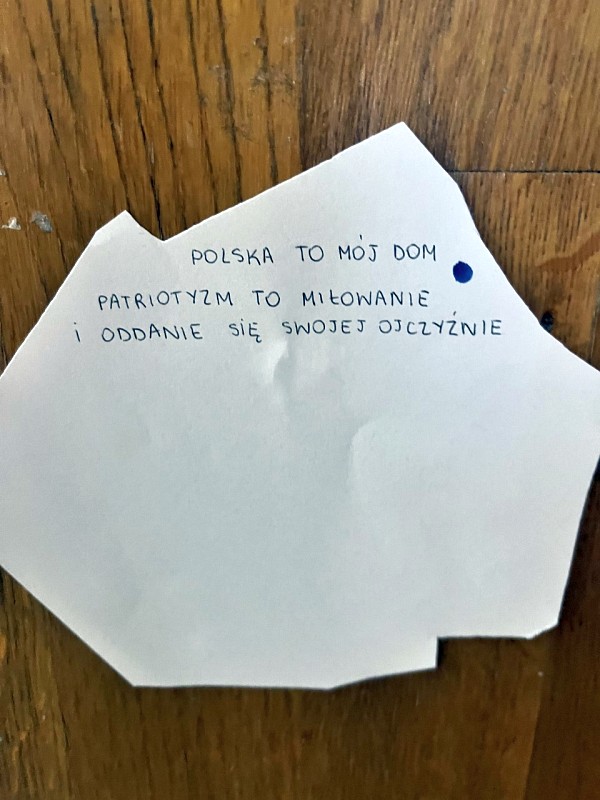 POLSKA TO MÓJ DOM
PATRIOTYZM TO MIŁOWANIE
i ODDANIE SiĘ SWOJEJ OJCZYŹNIE